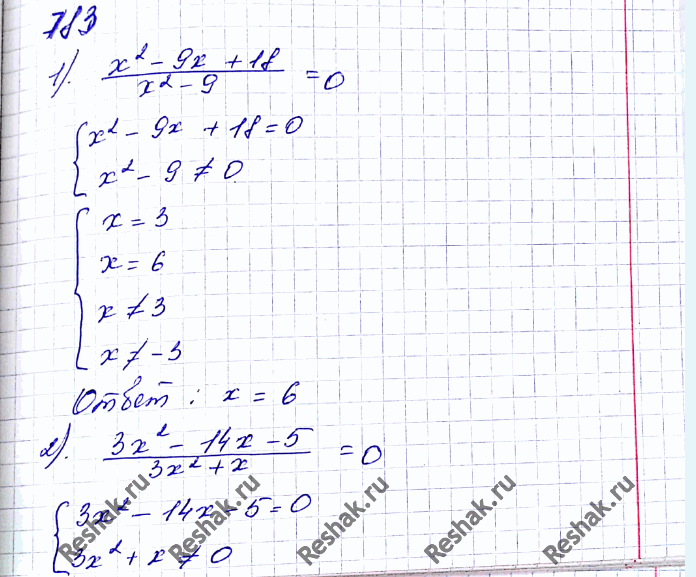 783
1). x² - 9x + 18 / x² - 9 = 0
{ x² - 9x + 18 = 0
x² - 9 ≠ 0
{ x = 3
x = 6
x ≠ 3
x ≠ -3
Ответ: x = 6
2). 3x² - 14x - 5 / 3x² + x = 0
{ 3x² - 14x - 5 = 0
3x² + x ≠ 0
Reshak.ru Reshak.ru Reshak.ru Reshak.ru Reshak.ru